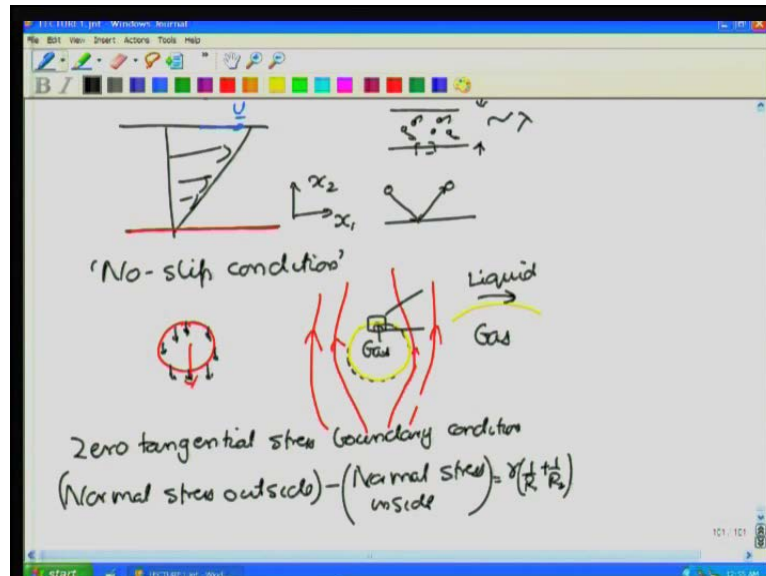 LECTURE 1.jnt - Windows Journal
File Edit View Insert Actions Tools Help
B I
U
~λ
x₂
x₁
'No-slip condition'
Liquid
Gas
Gas
Zero tangential stress boundary condition
(Normal stress outside) - (Normal stress inside) = γ(1/R₁ + 1/R₂)
101 / 101
start
12:55 AM